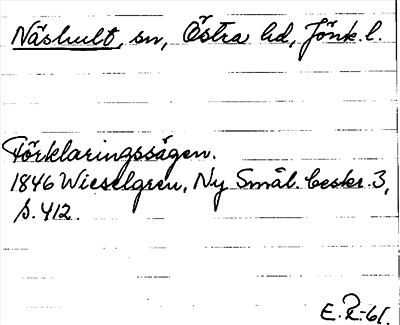 Näshult, sn, Östra hd, Jönk. l.
Förklaringssägen.
1846 Wieselgren, Ny Smål. beskr. 3,
s. 412.
E. R-61.